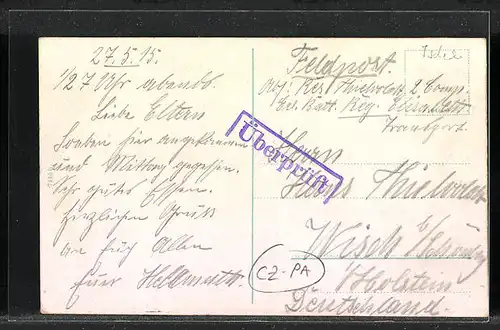 27.5.15.
1/2 7 Uhr abends.
Liebe Eltern
Soeben hier angekommen
und Mittag gegessen.
Sehr gutes Essen.
Herzlichen Gruß
an Euch Allen
Euer Hellmuth.
Feldpost.
Abs: Res. 2. Comp.
Ers. Batt. Reg. Elisabeth
Transport.
Überprüft
Herrn
Hans
Wisch b/ Schönbg
i/Holstein
Deutschland.
CZ-PA